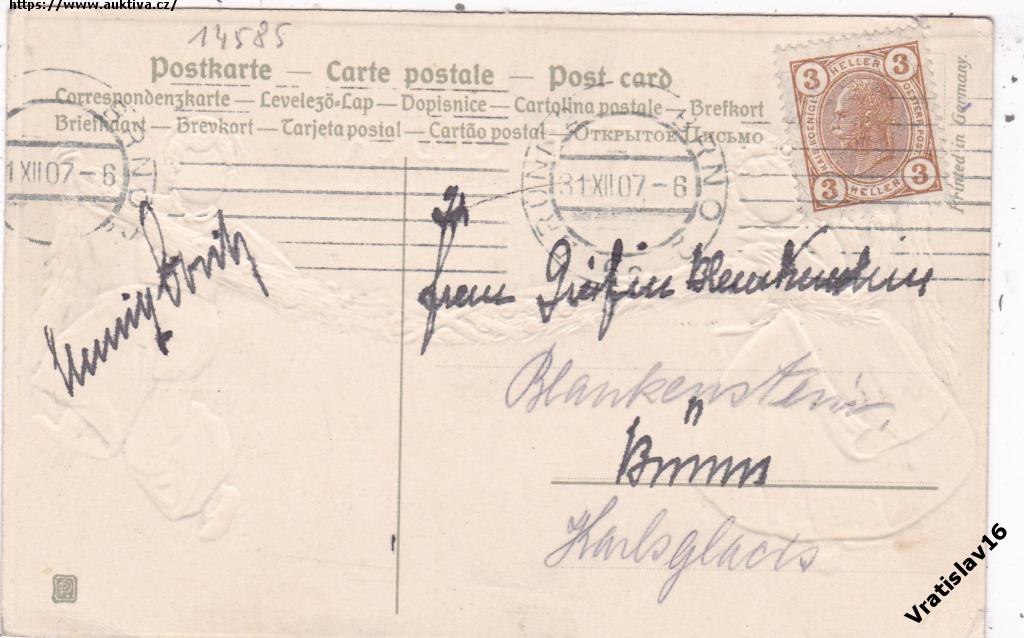 https://www.auktiva.cz/
14585
Postkarte — Carte postale — Post card
Correspondenzkarte — Levelező-Lap — Dopisnice — Cartolina postale — Brefkort
Briefkaart — Brevkort — Tarjeta postal — Cartão postal — Открытое Письмо
3 HELLER 3
KAIS. KOENIGL. OESTERR. POST
3 HELLER 3
Printed in Germany.
1 XII 07 - 6
BRNO
BRÜNN BRNO
31 XII 07 - 6
Frau Gräfin Blankenstein
Blankenstein
Brünn
Karlsglacis
Vratislav16